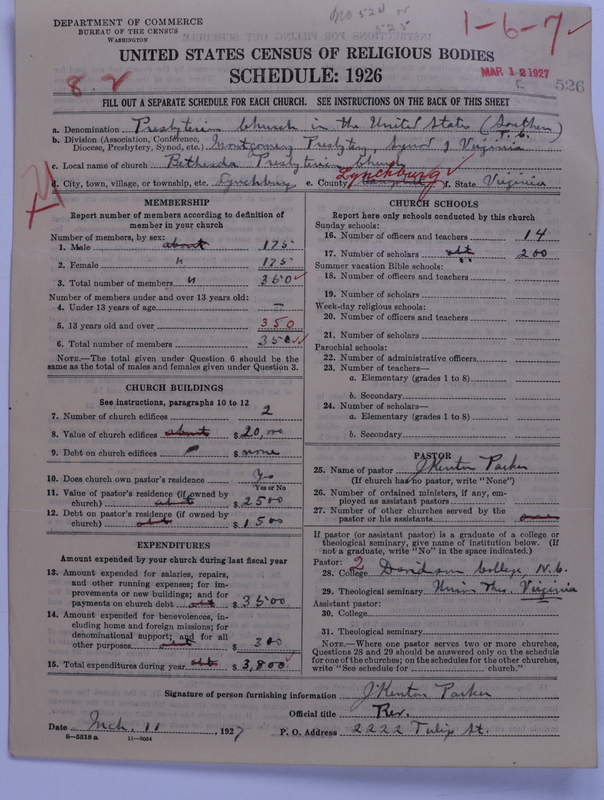 DEPARTMENT OF COMMERCE
BUREAU OF THE CENSUS
WASHINGTON
1-6-7
UNITED STATES CENSUS OF RELIGIOUS BODIES
SCHEDULE: 1926
MAR 12 1927
526
FILL OUT A SEPARATE SCHEDULE FOR EACH CHURCH. SEE INSTRUCTIONS ON THE BACK OF THIS SHEET
a. Denomination Presbyterian Church in the United States (Southern)
b. Division (Association, Conference, Diocese, Presbytery, Synod, etc.) Montgomery Presbytery, Synod of Virginia
c. Local name of church Bethesda Presbyterian Church
d. City, town, village, or township, etc. Lynchburg e. County Lynchburg f. State Virginia
MEMBERSHIP
Report number of members according to definition of member in your church
Number of members, by sex:
1. Male about 175
2. Female " 175
3. Total number of members " 350
Number of members under and over 13 years old:
4. Under 13 years of age —
5. 13 years old and over 350
6. Total number of members 350
NOTE.—The total given under Question 6 should be the same as the total of males and females given under Question 3.
CHURCH BUILDINGS
See instructions, paragraphs 10 to 12
7. Number of church edifices 2
8. Value of church edifices about $ 20,000
9. Debt on church edifices $ none
10. Does church own pastor's residence? Yes
Yes or No
11. Value of pastor's residence (if owned by church) abt $ 2500
12. Debt on pastor's residence (if owned by church) abt $ 1500
EXPENDITURES
Amount expended by your church during last fiscal year
13. Amount expended for salaries, repairs, and other running expenses; for improvements or new buildings; and for payments on church debt abt $ 3500
14. Amount expended for benevolences, including home and foreign missions; for denominational support; and for all other purposes abt $ 300
15. Total expenditures during year abt $ 3,800
CHURCH SCHOOLS
Report here only schools conducted by this church
Sunday schools:
16. Number of officers and teachers 14
17. Number of scholars abt 200
Summer vacation Bible schools:
18. Number of officers and teachers
19. Number of scholars
Week-day religious schools:
20. Number of officers and teachers
21. Number of scholars
Parochial schools:
22. Number of administrative officers
23. Number of teachers—
a. Elementary (grades 1 to 8)
b. Secondary
24. Number of scholars—
a. Elementary (grades 1 to 8)
b. Secondary
PASTOR
25. Name of pastor J Kenton Parker
(If church has no pastor, write "None")
26. Number of ordained ministers, if any, employed as assistant pastors
27. Number of other churches served by the pastor or his assistants
If pastor (or assistant pastor) is a graduate of a college or theological seminary, give name of institution below. (If not a graduate, write "No" in the space indicated.)
Pastor: 2
28. College Davidson College, N.C.
29. Theological seminary Union Theo. Virginia
Assistant pastor:
30. College
31. Theological seminary
NOTE.—Where one pastor serves two or more churches, Questions 28 and 29 should be answered only on the schedule for one of the churches; on the schedules for the other churches, write "See schedule for church."
Signature of person furnishing information J Kenton Parker
Official title Rev.
Date Mch. 11, 1927 P. O. Address 2222 Tulip St.
8-5518a 11-9034